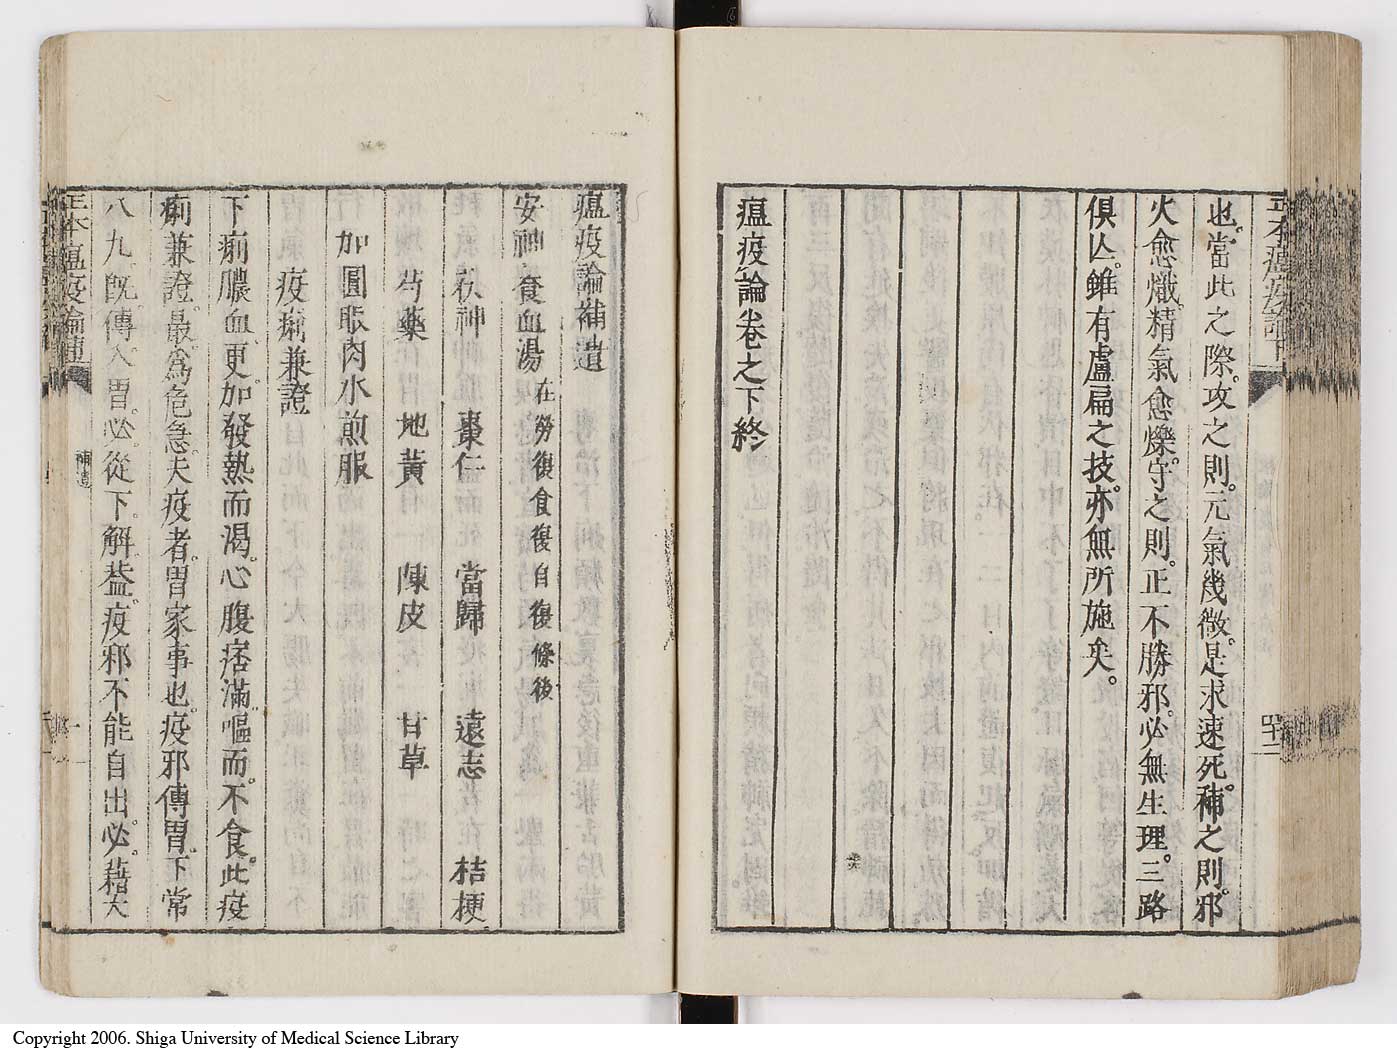 也當此之際。攻之則。元氣幾微。是求速死。補之則。邪
火愈熾。精氣愈爍。守之則。正不勝邪。必無生理。三路
俱亾。雖有盧扁之技。亦無所施矣。
瘟疫論卷之下終
四十二
瘟疫論補遺
安神養血湯 在勞復食復自復條後
茯神 棗仁 當歸 遠志 桔梗
芍藥 地黃 陳皮 甘草
加圓眼肉水煎服
疫痢兼證
下痢膿血。更加發熱而渴。心腹痞滿。嘔而。不食。此疫
痢兼證。最爲危急。夫疫者。胃家事也。疫邪傳胃。下常
八九。既。傳入。胃。必。從下。解。葢。疫邪不能自出。必。藉大
補遺
一
Copyright 2006. Shiga University of Medical Science Library